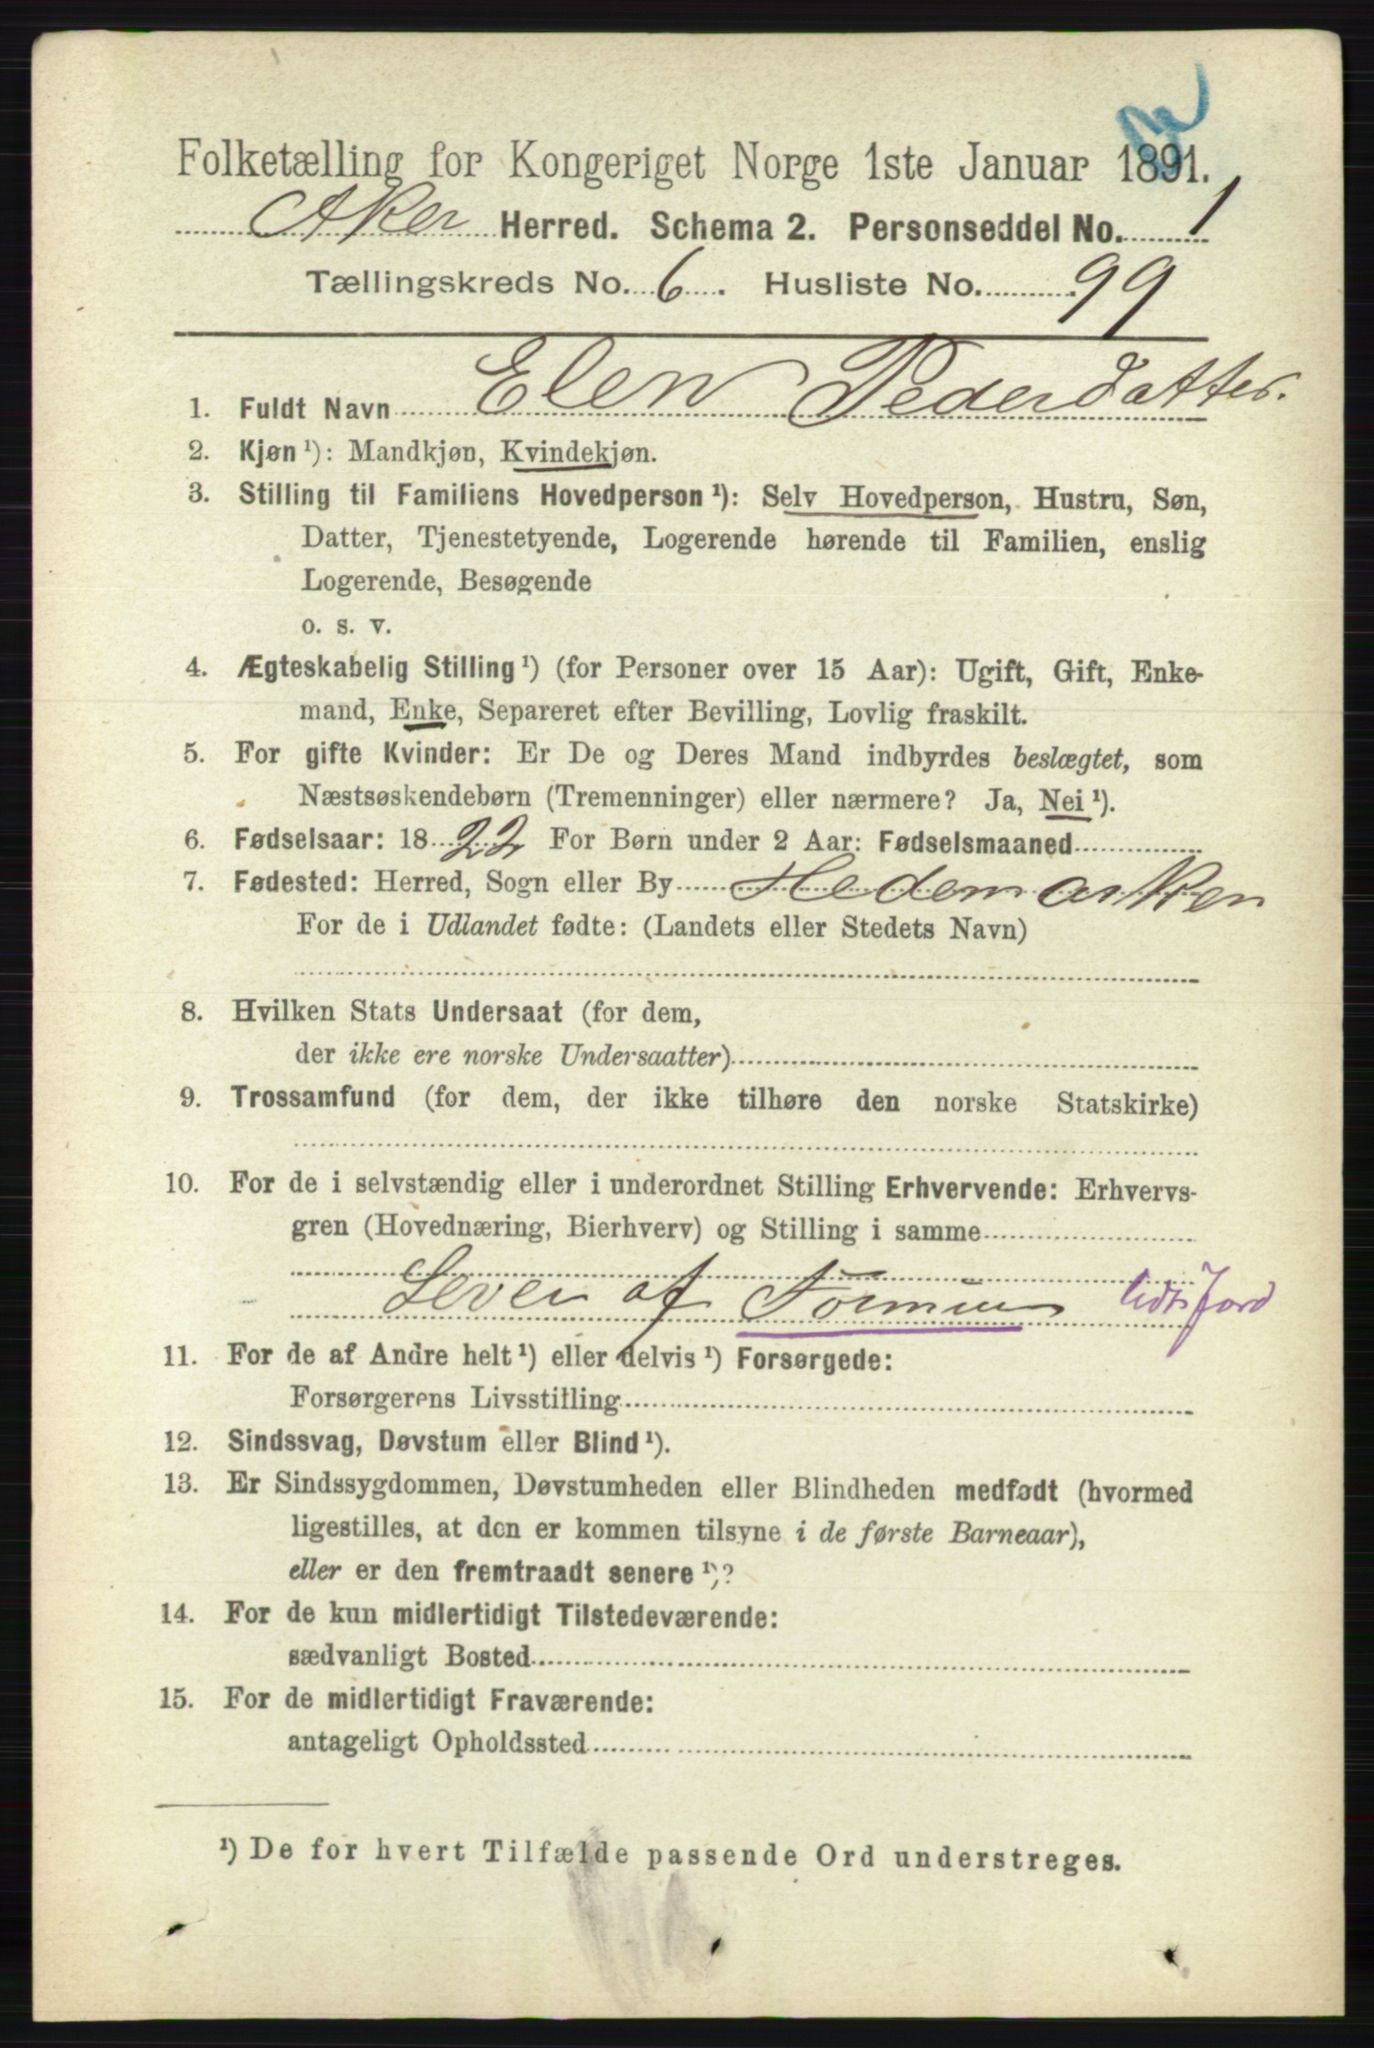 Folketælling for Kongeriget Norge 1ste Januar 1891.
Aker Herred. Schema 2. Personseddel No. 1
Tællingskreds No. 6. Husliste No. 99
1. Fuldt Navn Elen Pedersdatter.
2. Kjøn ¹): Mandkjøn, Kvindekjøn.
3. Stilling til Familiens Hovedperson ¹): Selv Hovedperson, Hustru, Søn,
Datter, Tjenestetyende, Logerende hørende til Familien, enslig
Logerende, Besøgende
o. s. v.
4. Ægteskabelig Stilling ¹) (for Personer over 15 Aar): Ugift, Gift, Enke-
mand, Enke, Separeret efter Bevilling, Lovlig fraskilt.
5. For gifte Kvinder: Er De og Deres Mand indbyrdes beslægtet, som
Næstsøskendebørn (Tremenninger) eller nærmere? Ja, Nei ¹).
6. Fødselsaar: 1822 For Børn under 2 Aar: Fødselsmaaned
7. Fødested: Herred, Sogn eller By Hedemarken
For de i Udlandet fødte: (Landets eller Stedets Navn)
8. Hvilken Stats Undersaat (for dem,
der ikke ere norske Undersaatter)
9. Trossamfund (for dem, der ikke tilhøre den norske Statskirke)
10. For de i selvstændig eller i underordnet Stilling Erhvervende: Erhvervs-
gren (Hovednæring, Bierhverv) og Stilling i samme
Lever af Formue
11. For de af Andre helt ¹) eller delvis ¹) Forsørgede:
Forsørgerens Livsstilling
12. Sindssvag, Døvstum eller Blind ¹).
13. Er Sindssygdommen, Døvstumheden eller Blindheden medfødt (hvormed
ligestilles, at den er kommen tilsyne i de første Barneaar),
eller er den fremtraadt senere ¹)?
14. For de kun midlertidigt Tilstedeværende:
sædvanligt Bosted
15. For de midlertidigt Fraværende:
antageligt Opholdssted
¹) De for hvert Tilfælde passende Ord understreges.